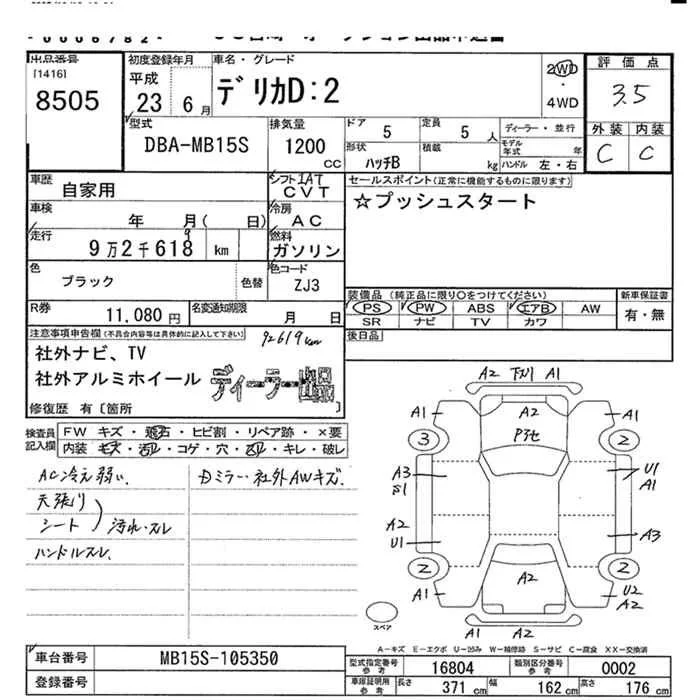 出品番号
[1416]
8505
初度登録年月
平成
23年 6月
車名・グレード
デリカD:2
2WD
・
4WD
評価点
3.5
外装 内装
C C
型式
DBA-MB15S
排気量
1200
CC
ドア
5
定員
5 人
ディーラー・並行
モデル年式 年
形状
ハッチB
積載
kg
ハンドル 左・右
車歴
自家用
シフト IAT
CVT
セールスポイント(正常に機能するものに限ります)
☆プッシュスタート
車検
年 月( 日)
冷房
AC
走行
9万2千618 km
9
燃料
ガソリン
色
ブラック
色替
色コード
ZJ3
装備品 (純正品に限り○をつけてください)
PS PW ABS エアB AW
SR ナビ TV カワ
新車保証書
有・無
R券
11,080 円
名変通知期限
月 日
後日品
注意事項申告欄(不具合内容等は具体的に記入して下さい)
92619km
社外ナビ、TV
社外アルミホイール
ディーラー出品
修復歴 有〔箇所
検査員記入欄
FW キズ・飛石・ヒビ割・リペア跡・×要
内装 キズ・汚れ・コゲ・穴・スレ・キレ・破レ
AC冷え弱い、
天張り
シート
汚れ・スレ
ハンドルスレ、
Dミラー・社外AWキズ、
A2 下スリ A1
A1
A2
A1
3
2
A3
U1
A1
A2
U1
A3
2
2
A1
A2
U2
A2
A1 A2
スペア
A-キズ E-エクボ U-凹み W-補修跡 S-サビ C-腐食 XX-交換済
車台番号
MB15S-105350
登録番号
型式指定番号
参考
16804
類別区分番号
参考
0002
車庫証明用
参考
長さ 371 cm
幅 162 cm
高さ 176 cm